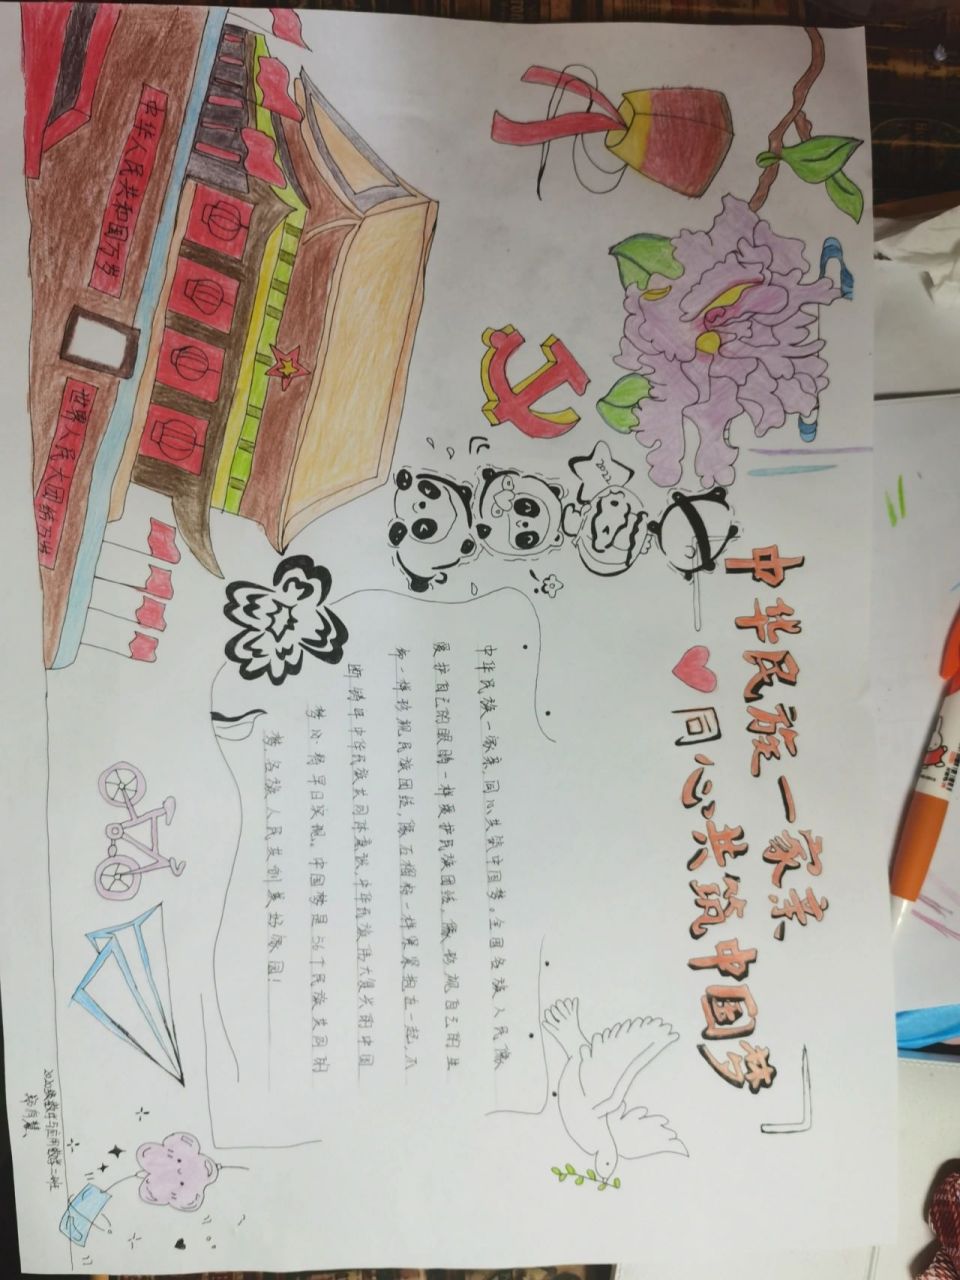 中华民族一家亲
同心共筑中国梦
中华民族一家亲，同心共筑中国梦。全国各族人民像
爱护自己的眼睛一样爱护民族团结，像珍视自己的生
命一样珍视民族团结，像石榴籽一样紧紧抱在一起，不
断铸牢中华民族共同体意识，中华民族伟大复兴的中国
梦必将早日实现。中国梦是56个民族共同的
梦各族人民共创美的家园！
中华人民共和国万岁
世界人民大团结万岁
2020级数学与应用数学二班